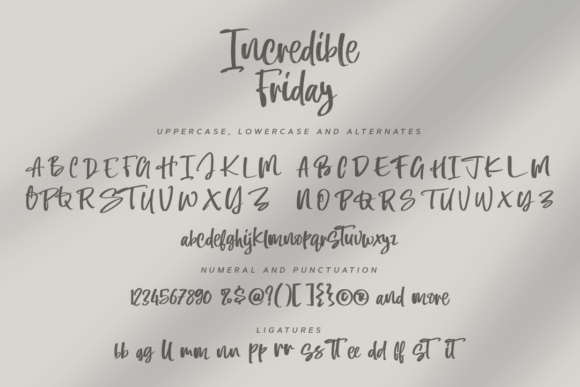 Incredible
Friday
UPPERCASE, LOWERCASE AND ALTERNATES
ABCDEFGHIJKLM ABCDEFGHIJKLM
OPQRSTUVWXYZ NOPQRSTUVWXYZ
abcdefghijklmnopqrstuvwxyz
NUMERAL AND PUNCTUATION
1234567890 %$@?()[]{}©® and more
LIGATURES
bb gg ll mm nn pp rr ss tt ee dd ff st it